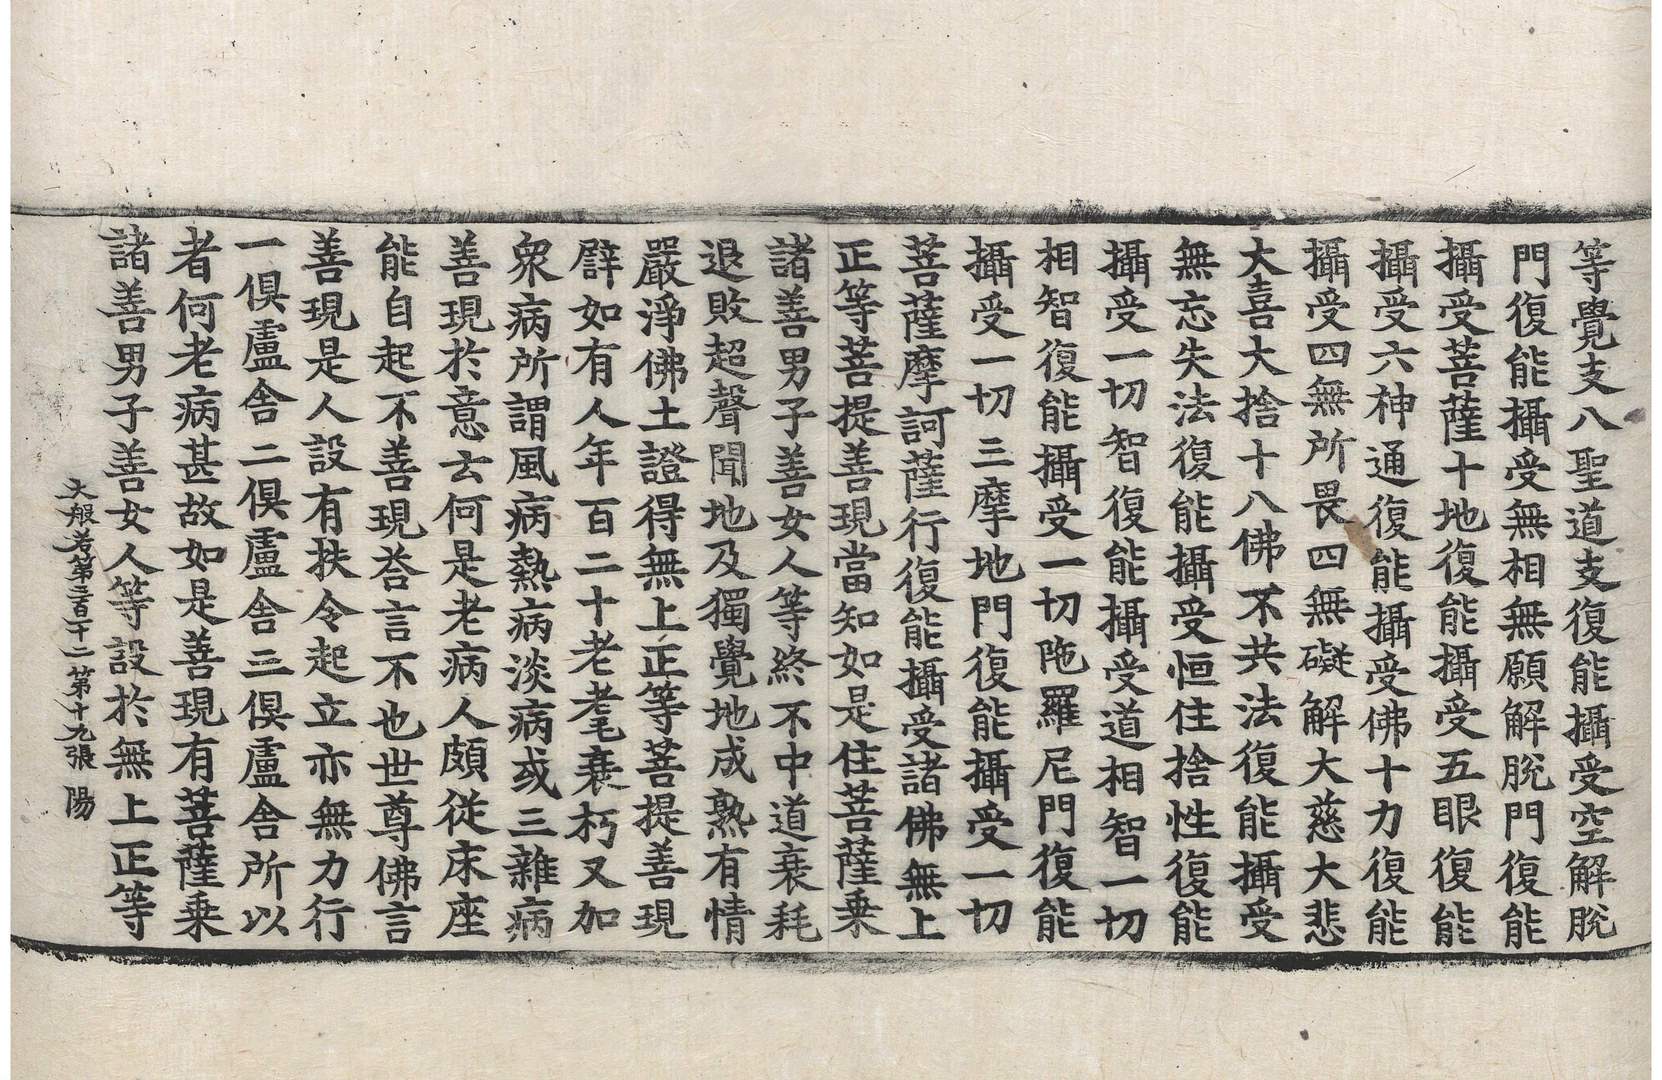 等覺支八聖道支復能攝受空解脫
門復能攝受無相無願解脫門復能
攝受菩薩十地復能攝受五眼復能
攝受六神通復能攝受佛十力復能
攝受四無所畏四無礙解大慈大悲
大喜大捨十八佛不共法復能攝受
無忘失法復能攝受恒住捨性復能
攝受一切智復能攝受道相智一切
相智復能攝受一切陁羅尼門復能
攝受一切三摩地門復能攝受一切
菩薩摩訶薩行復能攝受諸佛無上
正等菩提善現當知如是住菩薩乗
諸善男子善女人等終不中道衰耗
退敗超聲聞地及獨覺地成熟有情
嚴淨佛土證得無上正等菩提善現
譬如有人年百二十老耄衰朽又加
衆病所謂風病熱病淡病或三雜病
善現於意云何是老病人頗從床座
能自起不善現荅言不也世尊佛言
善現是人設有扶令起立亦無力行
一俱盧舍二俱盧舍三俱盧舍所以
者何老病甚故如是善現有菩薩乗
諸善男子善女人等設於無上正等
大般若第三百十二 第十九張 陽